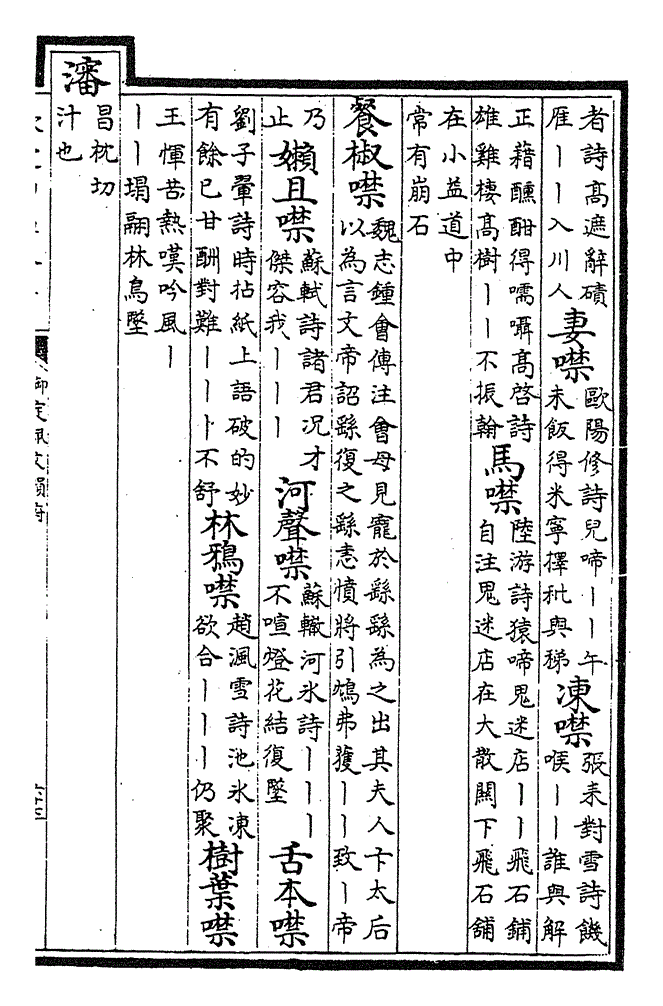 者詩高遮辭磧
雁丨丨入川人
妻噤
歐陽修詩兒啼丨丨午
未飯得米寧擇秕與稊
凍噤
張耒對雪詩饑
喉丨丨誰與解
正藉醺酣得嚅囁高啓詩
雄雞棲高樹丨丨不振翰
馬噤
陸游詩猿啼鬼迷店丨丨飛石鋪
自注鬼迷店在大散關下飛石鋪
在小益道中
常有崩石
餐椒噤
魏志鍾會傳注會母見寵於繇繇為之出其夫人卞太后
以為言文帝詔繇復之繇恚憤將引鴆弗獲丨丨致丨帝
乃
止
嬾且噤
蘇軾詩諸君况才
傑容我丨丨丨
河聲噤
蘇轍河氷詩丨丨丨
不喧燈花結復墜
舌本噤
劉子翬詩時拈紙上語破的妙
有餘已甘酬對難丨丨丨不舒
林鴉噤
趙渢雪詩池氷凍
欲合丨丨丨仍聚
樹葉噤
王惲苦熱嘆吟風丨
丨丨塌翮林鳥墜
瀋
昌枕切
汁也
御定佩文韻府